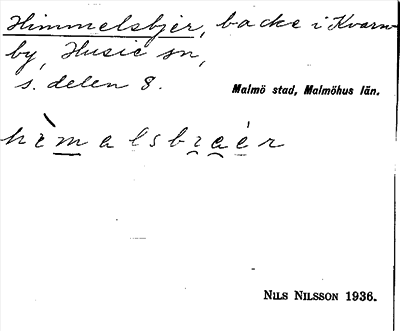 Himmelsbjer, backe i Kvarn
by, Husie sn,
s. delen 8.
Malmö stad, Malmöhus län.
NILS NILSSON 1936.